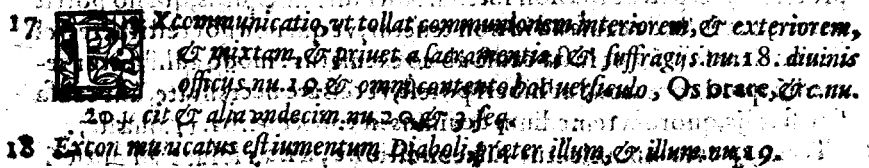 17 EXcommunicatio, vt tollat communionem interiorem, & exteriorem,
& mixtam, & priuet a sacramentis, & suffragijs. nu. 18. diuinis
officijs. nu. 19. & omni contento hoc uersiculo, Os orare, &c. nu.
20. & alia vndecim. nu. 20. & seq.
18 Excommunicatus est iumentum Diaboli, præter illum, & illum. nu. 19.